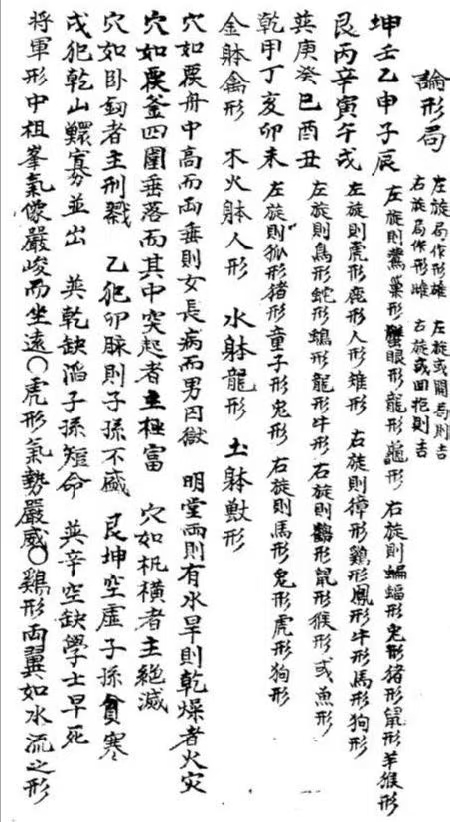 論形局
左旋局作形雄 左旋或開局則吉
右旋局作形雌 右旋或回抱則吉
坤壬乙申子辰 左旋則鶯巢形蟹眼形龍形龜形 右旋則蝙蝠形兔形猪形鼠形羊猴形
艮丙辛寅午戌 左旋則虎形鹿形人形雉形 右旋則獐形鷄形鳳形牛形馬形狗形
巽庚癸巳酉丑 左旋則鳥形蛇形鵝形龍形牛形右旋則鶴形鼠形猴形或魚形
乾甲丁亥卯未 左旋則狐形猪形童子形兔形 右旋則馬形兔形虎形狗形
金躰禽形 木火躰人形 水躰龍形 土躰獸形
穴如覆舟中高而両垂則女長病而男囚獄 明堂雨則有水旱則乾燥者火灾
穴如覆釜四圍垂落而其中突起者主極富 穴如机横者主絶滅
穴如卧劒者主刑戮 乙犯卯脉則子孫不盛 艮坤空虛子孫貧寒
戌犯乾山鰥寡並出 巽乾缺滔子孫短命 巽辛空缺學士早死
将軍形中祖峯氣像嚴峻而坐遠〇虎形氣勢嚴威〇鷄形両翼如水流之形